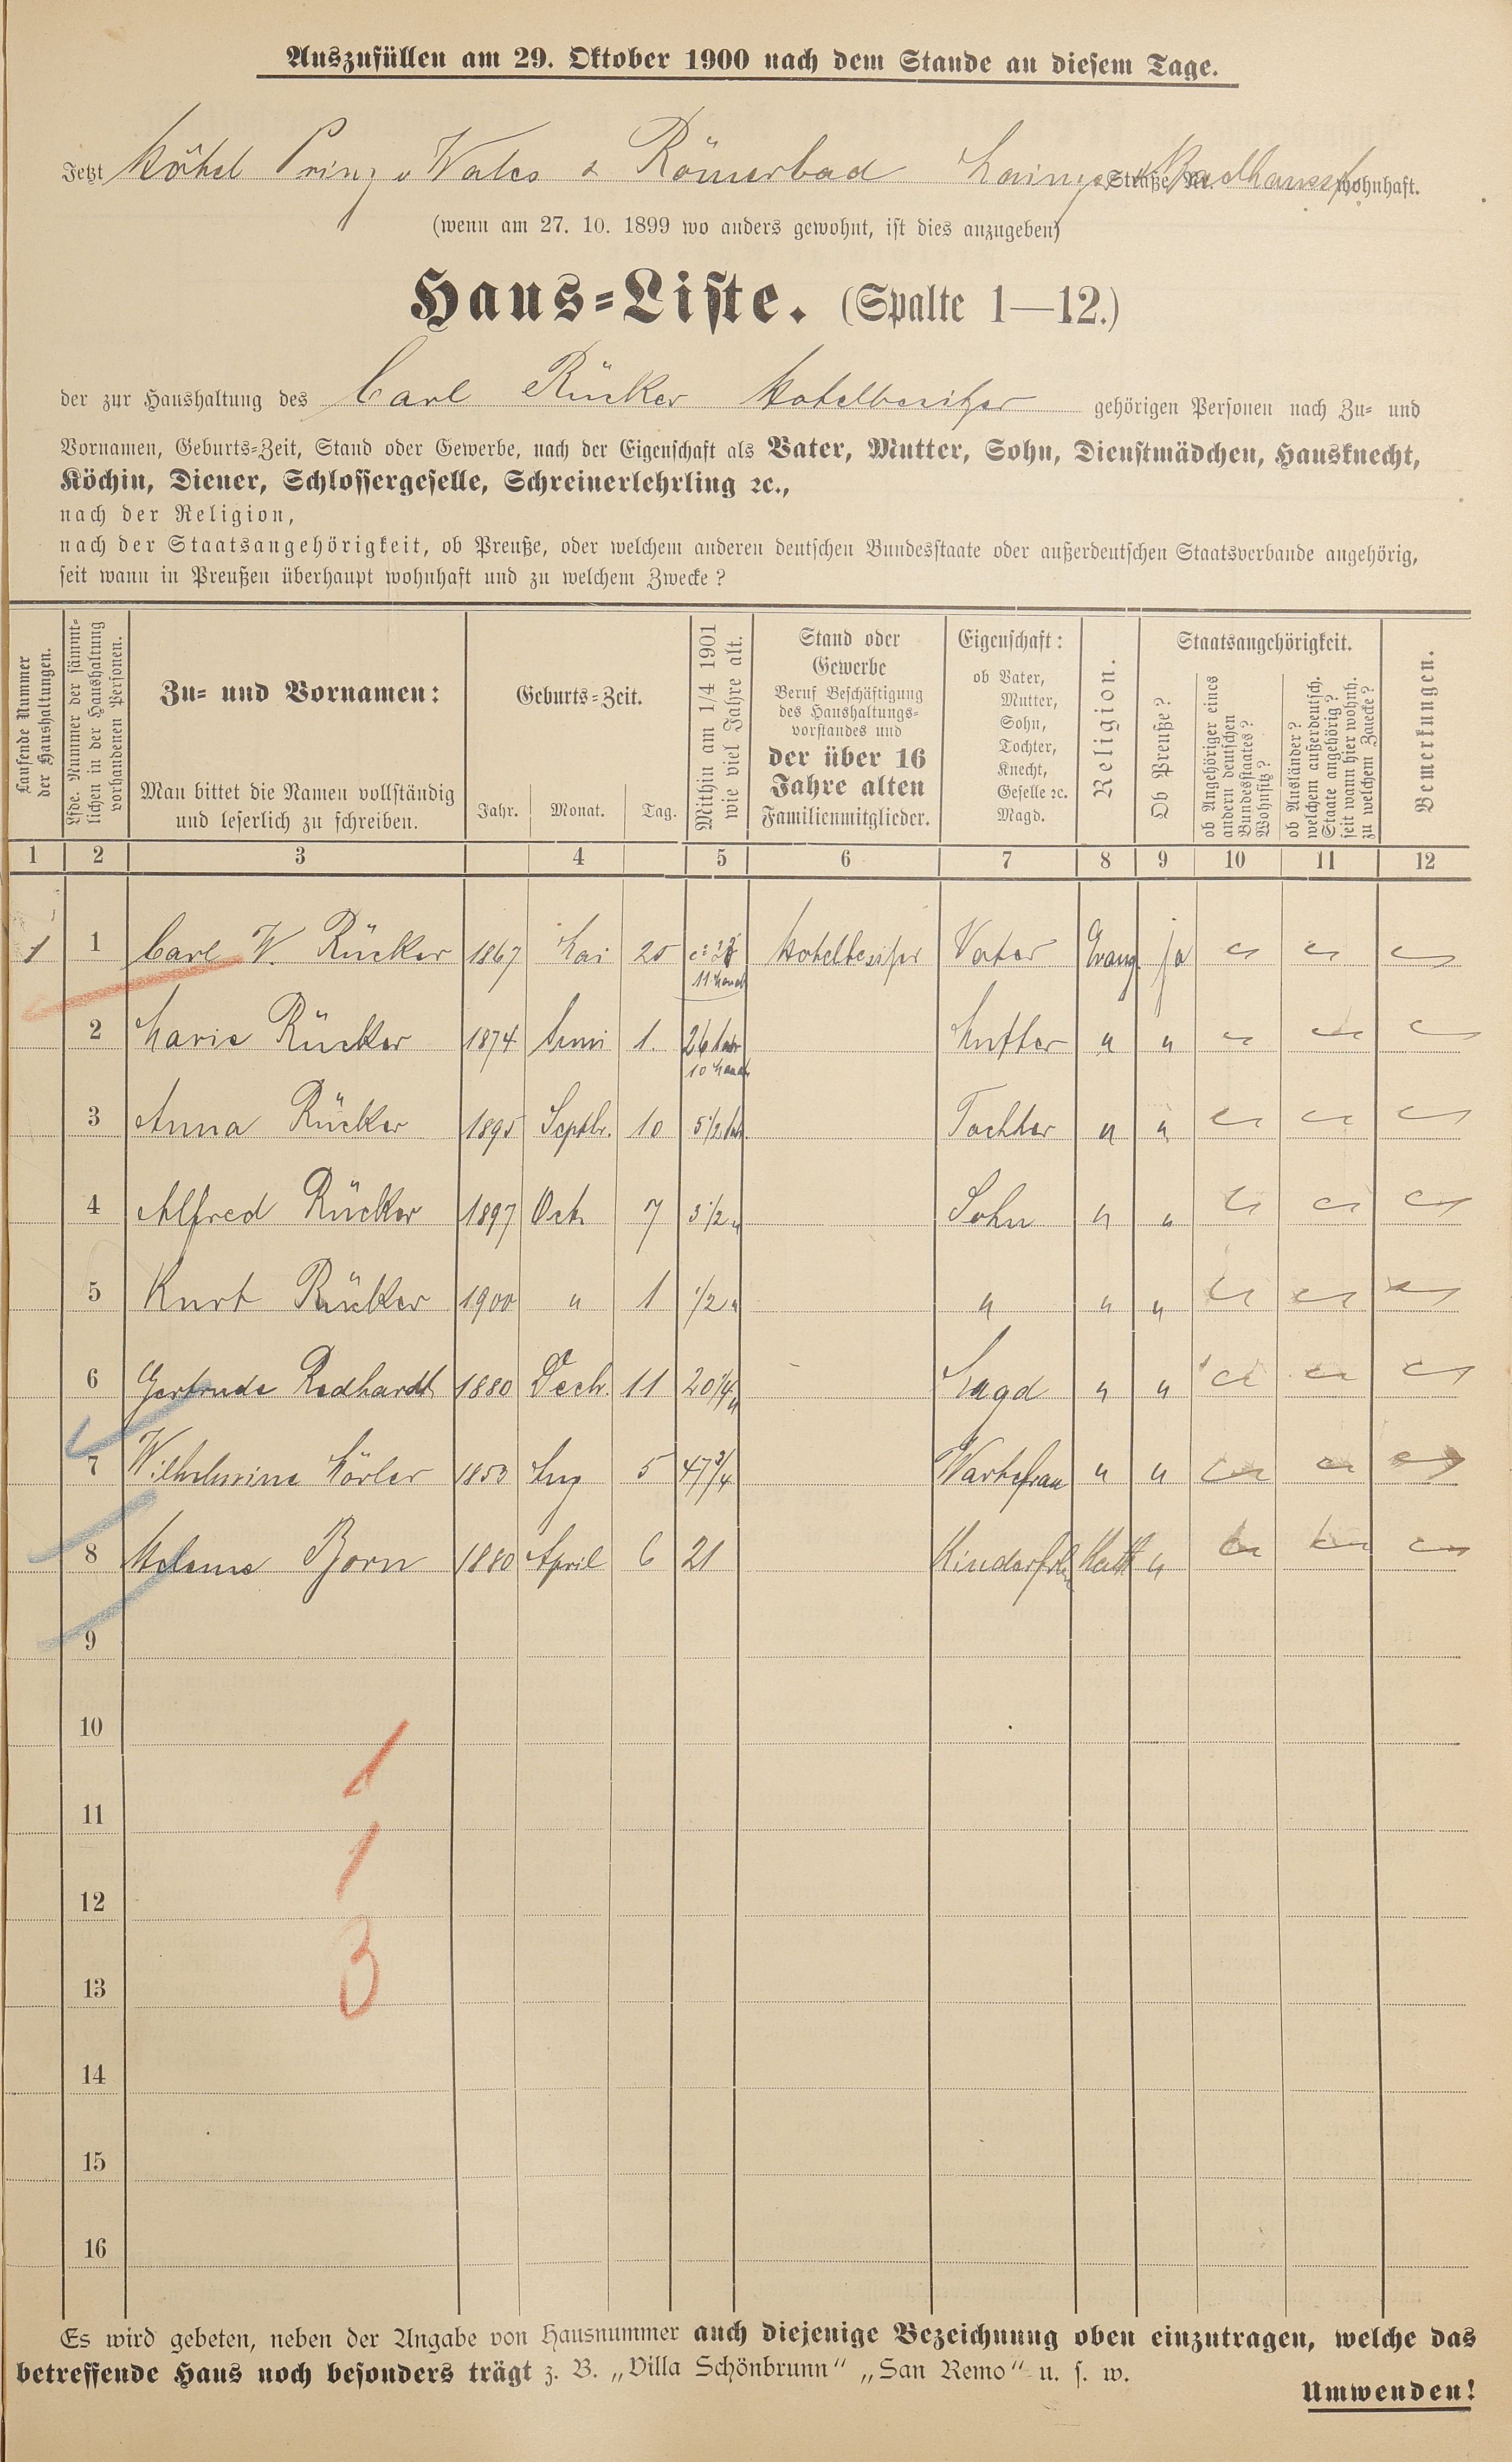 Auszufüllen am 29. Oktober 1900 nach dem Stande an diesem Tage.
Jetzt Hôtel Prinz v Wales & Römerbad Straße Nr. wohnhaft.
(wenn am 27. 10. 1899 wo anders gewohnt, ist dies anzugeben)
Haus-Liste. (Spalte 1—12.)
der zur Haushaltung des Carl Rücker Hotelbesitzer gehörigen Personen nach Zu- und
Vornamen, Geburts-Zeit, Stand oder Gewerbe, nach der Eigenschaft als Vater, Mutter, Sohn, Dienstmädchen, Hausknecht,
Köchin, Diener, Schlossergeselle, Schreinerlehrling ꝛc.,
nach der Religion,
nach der Staatsangehörigkeit, ob Preuße, oder welchem anderen deutschen Bundesstaate oder außerdeutschen Staatsverbande angehörig,
seit wann in Preußen überhaupt wohnhaft und zu welchem Zwecke?
Laufende Nummer
der Haushaltungen.
Lfde. Nummer der sämmt-
lichen in der Haushaltung
vorhandenen Personen.
Zu- und Vornamen:
Man bittet die Namen vollständig
und leserlich zu schreiben.
Geburts-Zeit.
Jahr. Monat. Tag.
Mithin am 1/4 1901
wie viel Jahre alt.
Stand oder
Gewerbe
Beruf Beschäftigung
des Haushaltungs-
vorstandes und
der über 16
Jahre alten
Familienmitglieder.
Eigenschaft:
ob Vater,
Mutter,
Sohn,
Tochter,
Knecht,
Geselle ꝛc.
Magd.
Religion.
Staatsangehörigkeit.
Ob Preuße?
ob Angehöriger eines
andern deutschen
Bundesstaates?
Wohnsitz?
ob Ausländer?
welchem außerdeutsch.
Staate angehörig?
seit wann hier wohnh.
zu welchem Zwecke?
Bemerkungen.
1 2 3 4 5 6 7 8 9 10 11 12
1 1 Carl W. Rücker 1867 Mai 25 Hotelbesitzer Vater Evang. ja
11 Monat
2 Marie Rücker 1874 Juni 1. 26 Jahr Mutter " "
10 Monat
3 Anna Rücker 1895 Septbr. 10 5 1/2 Jah. Tochter " "
4 Alfred Rücker 1897 Oct. 7 3 1/2 " Sohn " "
5 Kurt Rücker 1900 " 1 1/2 " " " "
6 Gertrude Redhardt 1880 Dech. 11 20 1/4 " Magd " "
7 Wilhelmine Körler 1853 Aug 5 47 3/4 Wartefrau " "
8 Helene Born 1880 April 6 21 Kinderfrln Kath "
9
10
1
11
1
12
3
13
14
15
16
Es wird gebeten, neben der Angabe von Hausnummer auch diejenige Bezeichnung oben einzutragen, welche das
betreffende Haus noch besonders trägt z. B. „Villa Schönbrunn“ „San Remo“ u. s. w.
Umwenden!